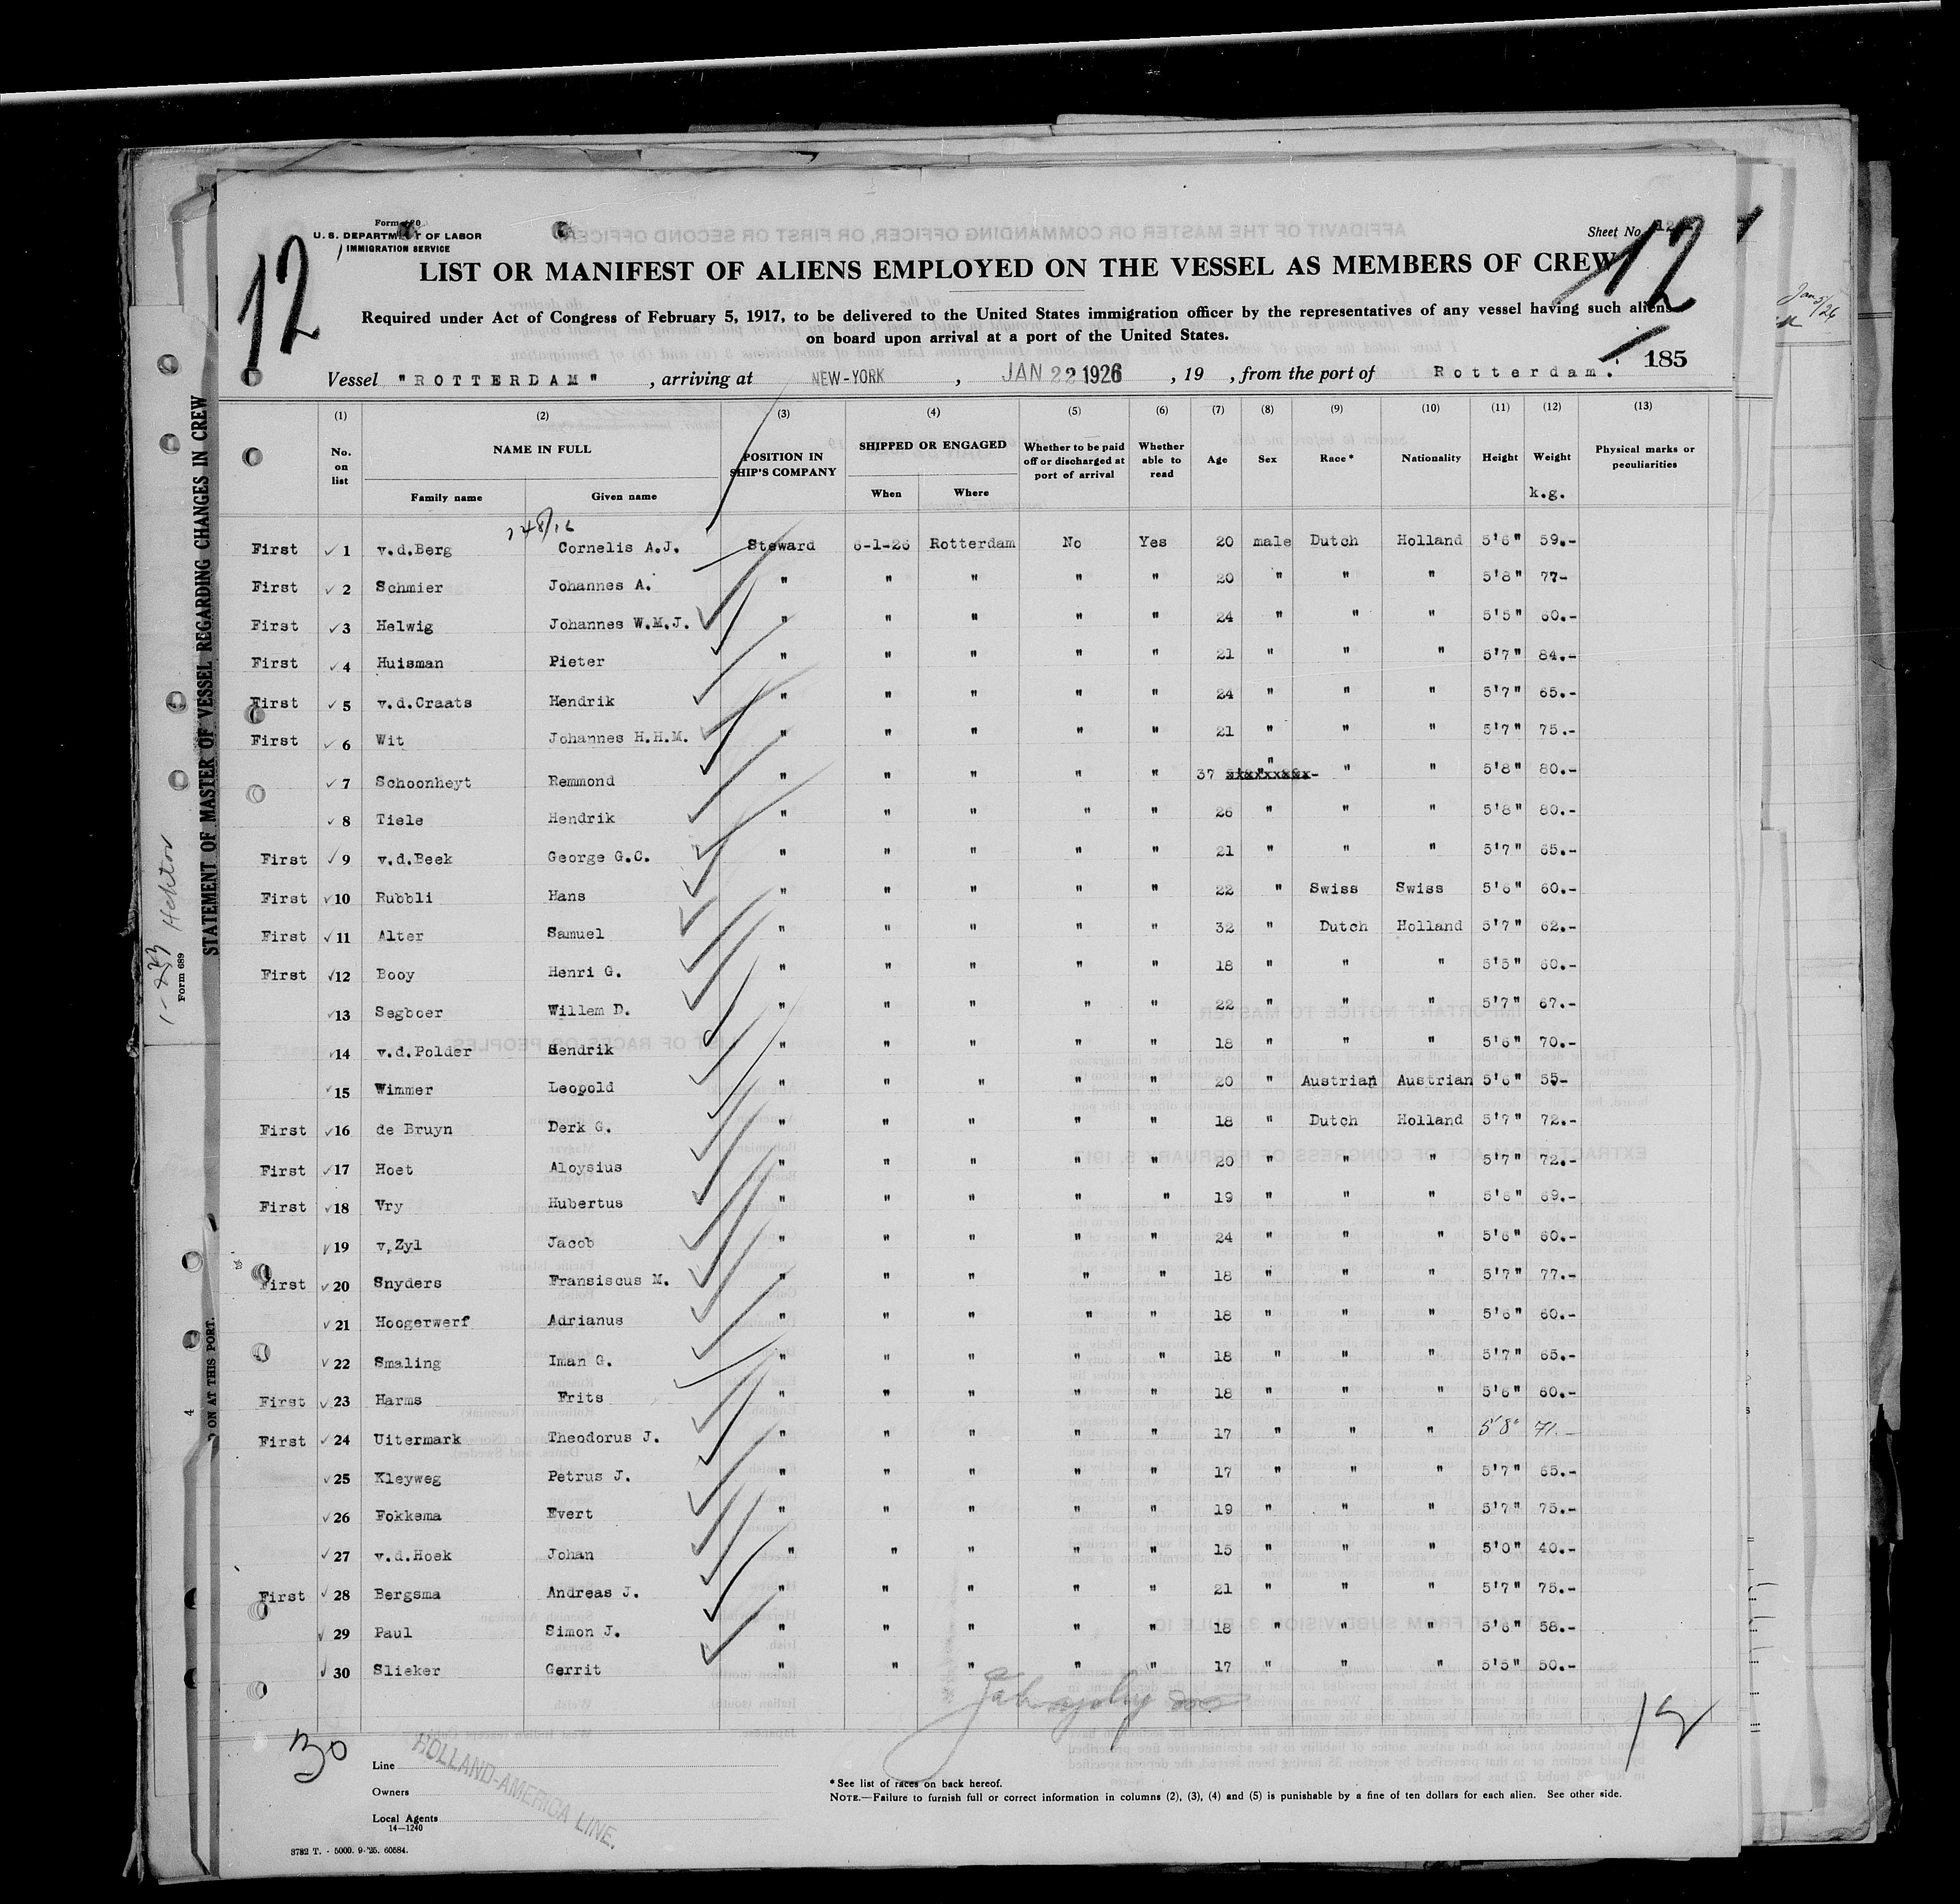 Form 680
U. S. DEPARTMENT OF LABOR
IMMIGRATION SERVICE
Sheet No. 12
12
12
LIST OR MANIFEST OF ALIENS EMPLOYED ON THE VESSEL AS MEMBERS OF CREW
Required under Act of Congress of February 5, 1917, to be delivered to the United States immigration officer by the representatives of any vessel having such aliens
on board upon arrival at a port of the United States.
185
Vessel "ROTTERDAM" , arriving at NEW-YORK , JAN 22 1926 , 19 , from the port of Rotterdam.
(1) (2) (3) (4) (5) (6) (7) (8) (9) (10) (11) (12) (13)
No. on list NAME IN FULL Family name Given name POSITION IN SHIP'S COMPANY SHIPPED OR ENGAGED When Where Whether to be paid off or discharged at port of arrival Whether able to read Age Sex Race* Nationality Height Weight k.g. Physical marks or peculiarities
First ✓ 1 v.d.Berg Cornelis A.J. Steward 6-1-26 Rotterdam No Yes 20 male Dutch Holland 5'6" 59.-
First ✓ 2 Schmier Johannes A. " " " " " 20 " " " 5'8" 77-
First ✓ 3 Helwig Johannes W.M.J. " " " " " 24 " " " 5'5" 60.-
First ✓ 4 Huisman Pieter " " " " " 21 " " " 5'7" 84.-
First ✓ 5 v.d.Craats Hendrik " " " " " 24 " " " 5'7" 65.-
First ✓ 6 Wit Johannes H.H.M. " " " " " 21 " " " 5'7" 75.-
✓ 7 Schoonheyt Remmond " " " " " 37 " " " 5'8" 80.-
✓ 8 Tiele Hendrik " " " " " 26 " " " 5'8" 80.-
First ✓ 9 v.d.Beek George G.C. " " " " " 21 " " " 5'7" 65.-
First ✓ 10 Rubbli Hans " " " " " 22 " Swiss Swiss 5'6" 60.-
First ✓ 11 Alter Samuel " " " " " 32 " Dutch Holland 5'7" 62.-
First ✓ 12 Booy Henri G. " " " " " 18 " " " 5'5" 60.-
✓ 13 Segboer Willem D. " " " " " 22 " " " 5'7" 67.-
✓ 14 v.d.Polder Hendrik " " " " " 18 " " " 5'6" 70.-
✓ 15 Wimmer Leopold " " " " " 20 " Austrian Austrian 5'6" 55-
First ✓ 16 de Bruyn Derk G. " " " " " 18 " Dutch Holland 5'7" 72.-
First ✓ 17 Hoet Aloysius " " " " " 20 " " " 5'7" 72.-
First ✓ 18 Vry Hubertus " " " " " 19 " " " 5'6" 69.-
✓ 19 v,Zyl Jacob " " " " " 24 " " " 5'6" 60.-
First ✓ 20 Snyders Fransiscus M. " " " " " 18 " " " 5'7" 77.-
✓ 21 Hoogerwerf Adrianus " " " " " 18 " " " 5'6" 60.-
✓ 22 Smaling Iman G. " " " " " 18 " " " 5'7" 65.-
First ✓ 23 Harms Frits " " " " " 18 " " " 5'6" 60.-
First ✓ 24 Uitermark Theodorus J. " " " " " 17 " " " 5'8" 71.-
✓ 25 Kleyweg Petrus J. " " " " " 17 " " " 5'7" 65.-
✓ 26 Fokkema Evert " " " " " 19 " " " 5'7" 75.-
✓ 27 v.d.Hoek Johan " " " " " 15 " " " 5'0" 40.-
First ✓ 28 Bergsma Andreas J. " " " " " 21 " " " 5'7" 75.-
✓ 29 Paul Simon J. " " " " " 18 " " " 5'6" 58.-
✓ 30 Slieker Gerrit " " " " " 17 " " " 5'5" 50.-
30
Line
Owners
Local Agents
HOLLAND-AMERICA LINE.
14—1240
* See list of races on back hereof.
NOTE.—Failure to furnish full or correct information in columns (2), (3), (4) and (5) is punishable by a fine of ten dollars for each alien. See other side.
3782 T. - 5000. 9-'25. 60584.
STATEMENT OF MASTER OF VESSEL REGARDING CHANGES IN CREW
Form 689
ON AT THIS PORT.
4